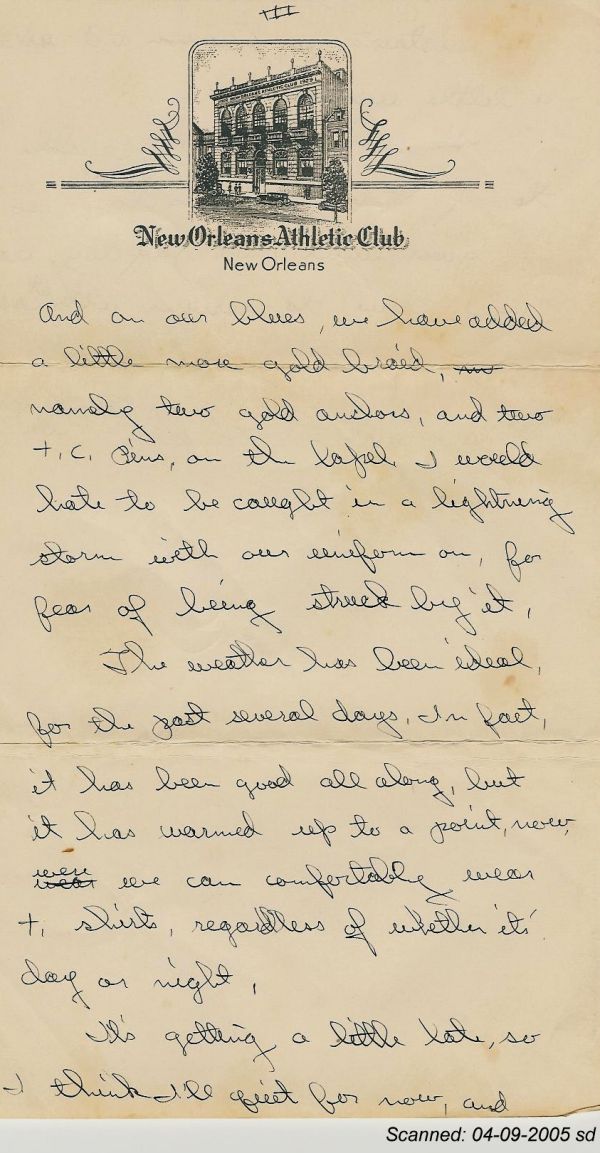 III
NEW ORLEANS ATHLETIC CLUB
New Orleans Athletic Club
New Orleans
And on our blues, we have added
a little more gold braid,
namely two gold anchors, and two
t.c. Pins, on the lapel. I would
hate to be caught in a lightning
storm with our uniform on, for
fear of being struck by it,
The weather has been ideal,
for the past several days. In fact,
it has been good all along, but
it has warmed up to a point, now,
were
wear we can comfortably wear
t. shirts, regardless of whether its'
day or night,
It's getting a little late, so
I think I'll quit for now, and
Scanned: 04-09-2005 sd